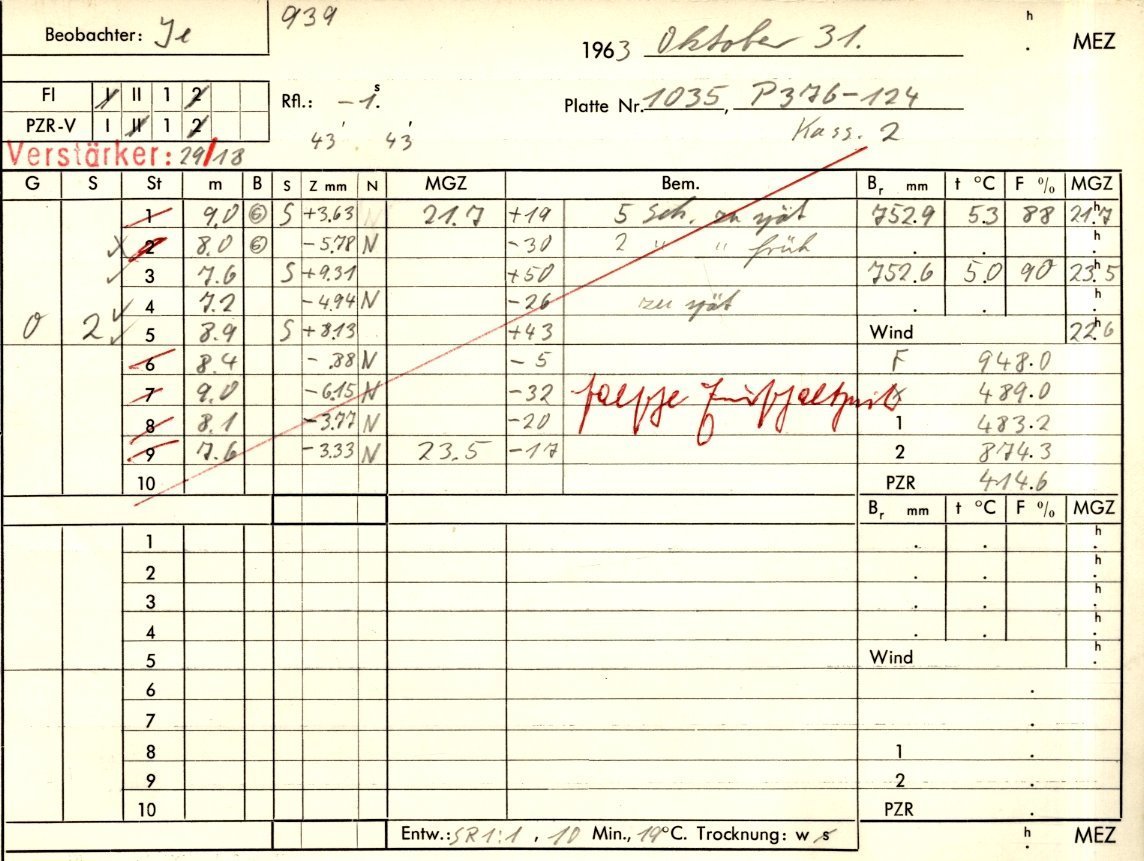 939
Beobachter: Je
1963 Oktober 31. h . MEZ
FI I II 1 2
PZR-V I II 1 2
Rfl.: -1.s
Platte Nr. 1035, P376-124
43' 43'
Kass. 2
Verstärker: 29/18
G S St m B S Z mm N MGZ Bem. Br mm t °C F % MGZ
1 9.0 6 S +3.63 N 21.7 +19 5 Sek. zu spät 752.9 5.3 88 21.h7
2 8.0 6 -5.78 N -30 2 " " früh . . h.
3 7.6 S +9.31 +50 752.6 5.0 90 23.h5
4 7.2 -4.94 N -26 zu spät . . h.
0 2 5 8.9 S +8.13 +43 Wind 22.h6
6 8.4 -.88 N -5 F 948.0
7 9.0 -6.15 N -32 falsche 489.0
8 8.1 -3.77 N -20 1 483.2
9 7.6 -3.33 N 23.5 -17 2 874.3
10 PZR 414.6
Br mm t °C F % MGZ
1 . . h.
2 . . h.
3 . . h.
4 . . h.
5 Wind h.
6 .
7 .
8 1
9 2
10 PZR
Entw.: SR1:1, 10 Min., 19°C. Trocknung: w s h . MEZ